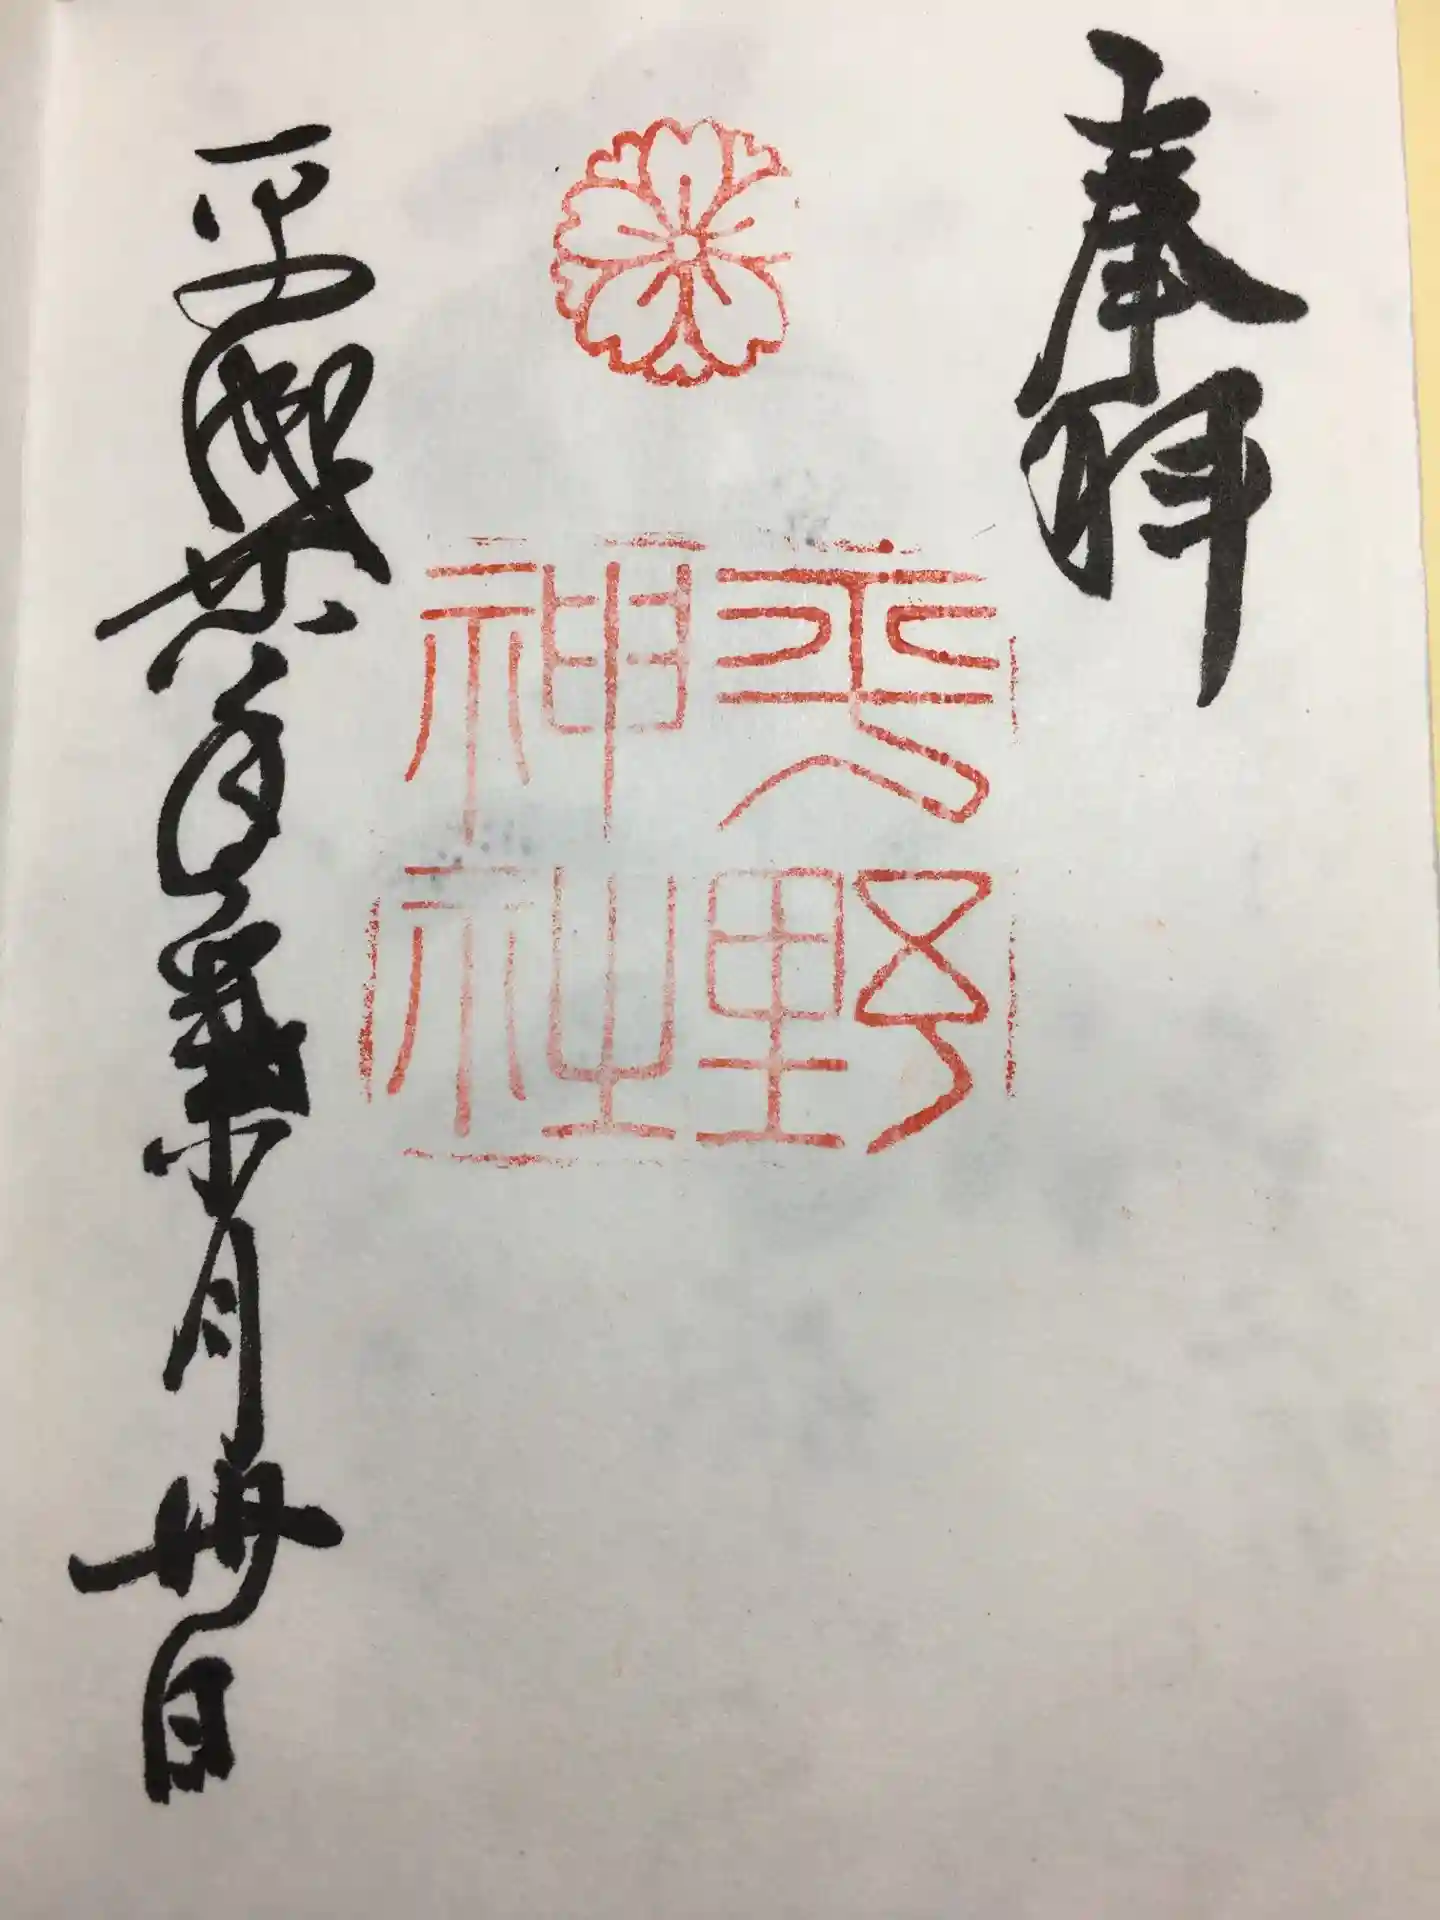 奉拝
平野
神社
平成廿八年葉月卅日